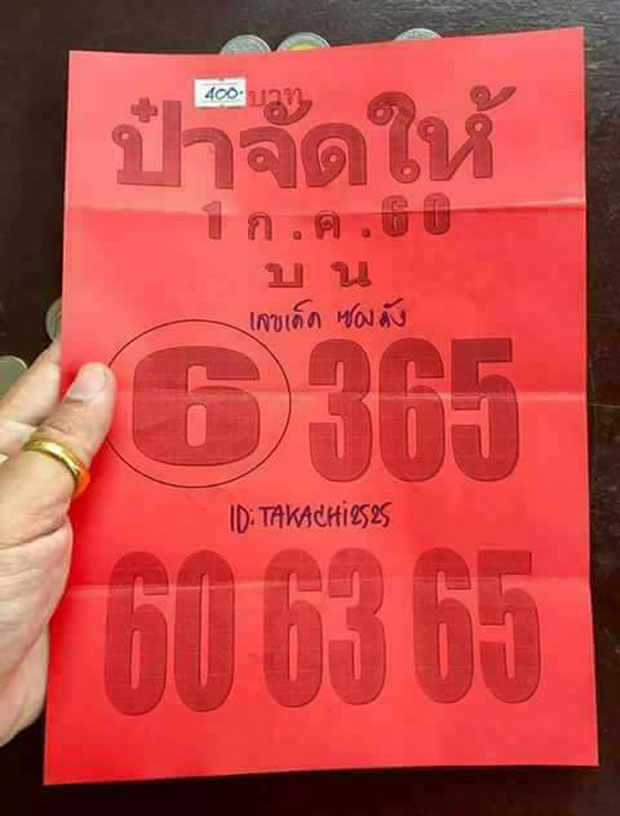 400.- บาท
ป๋าจัดให้
1 ก.ค.60
บน
เลขเด็ด ซองดัง
6 365
ID:TAKACHi2525
60 63 65